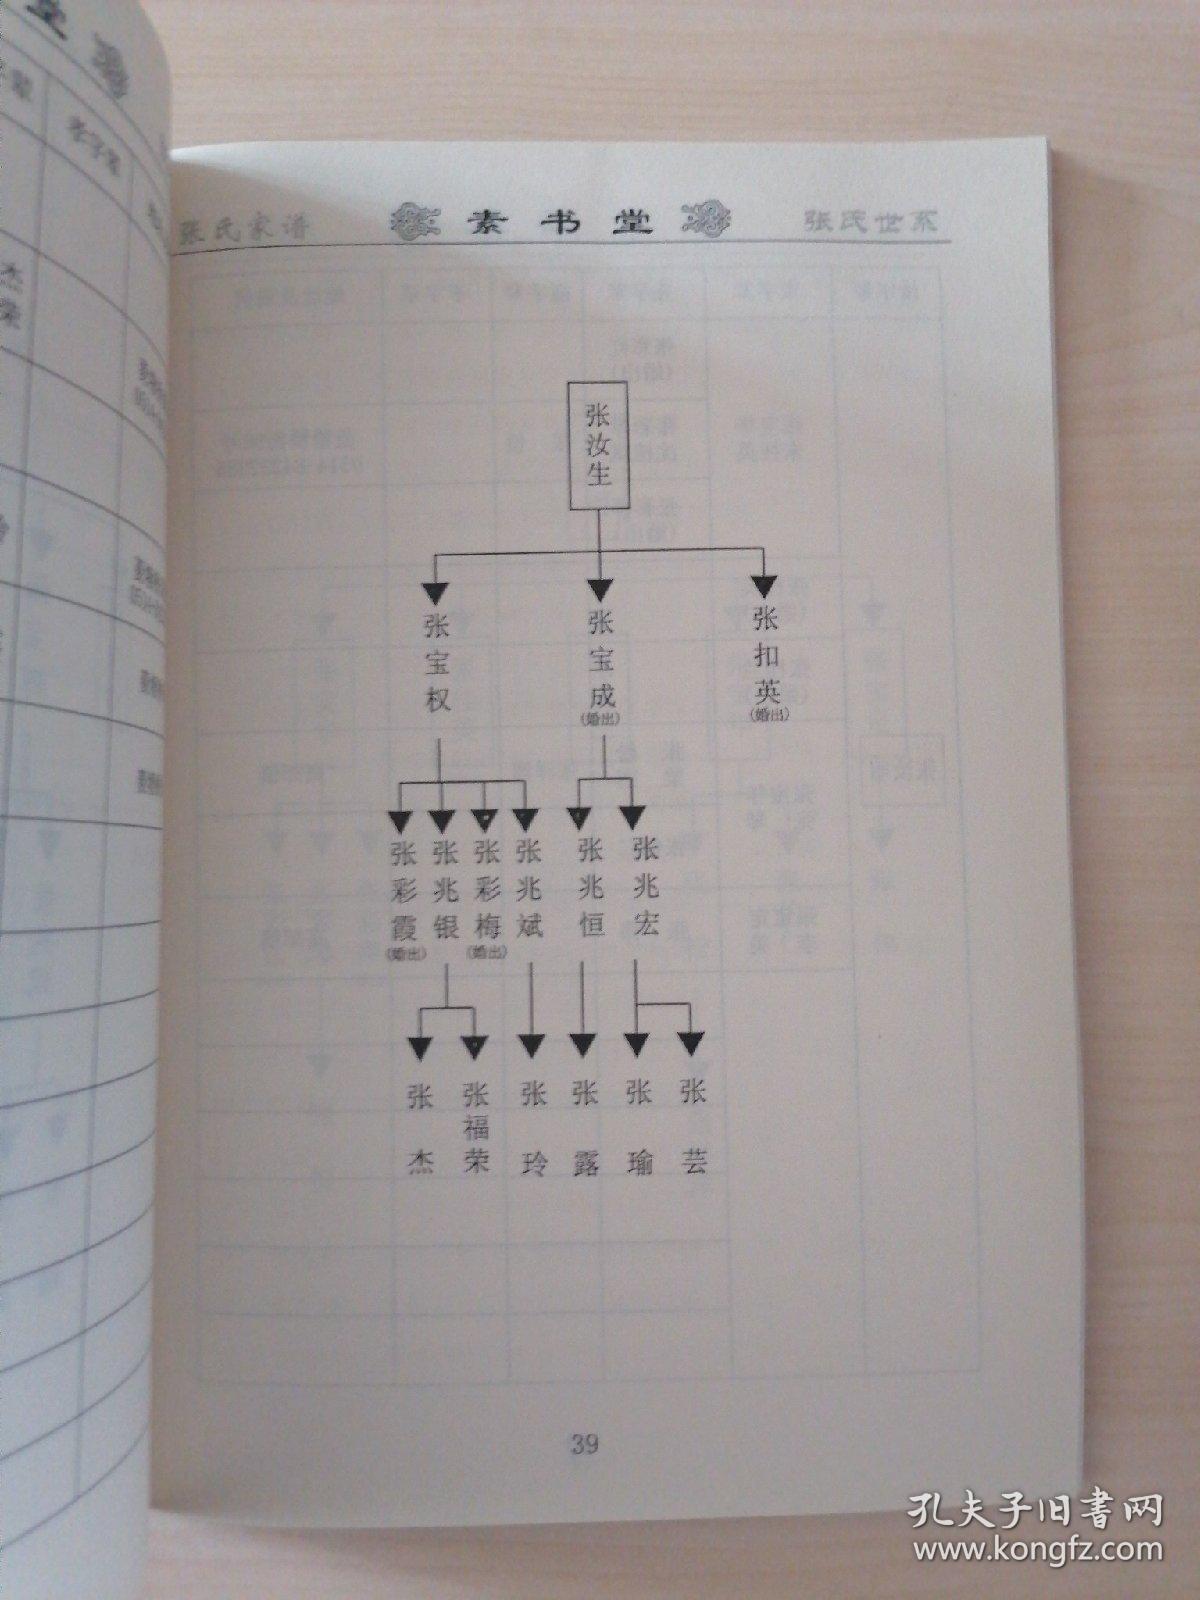 张氏家谱 素书堂 张氏世系
张汝生
张宝权 张宝成(婚出) 张扣英(婚出)
张彩霞(婚出) 张兆银 张彩梅(婚出) 张兆斌 张兆恒 张兆宏
张杰 张福荣 张玲 张露 张瑜 张芸
39
孝字辈
杰
荣
孔夫子旧书网
www.kongfz.com